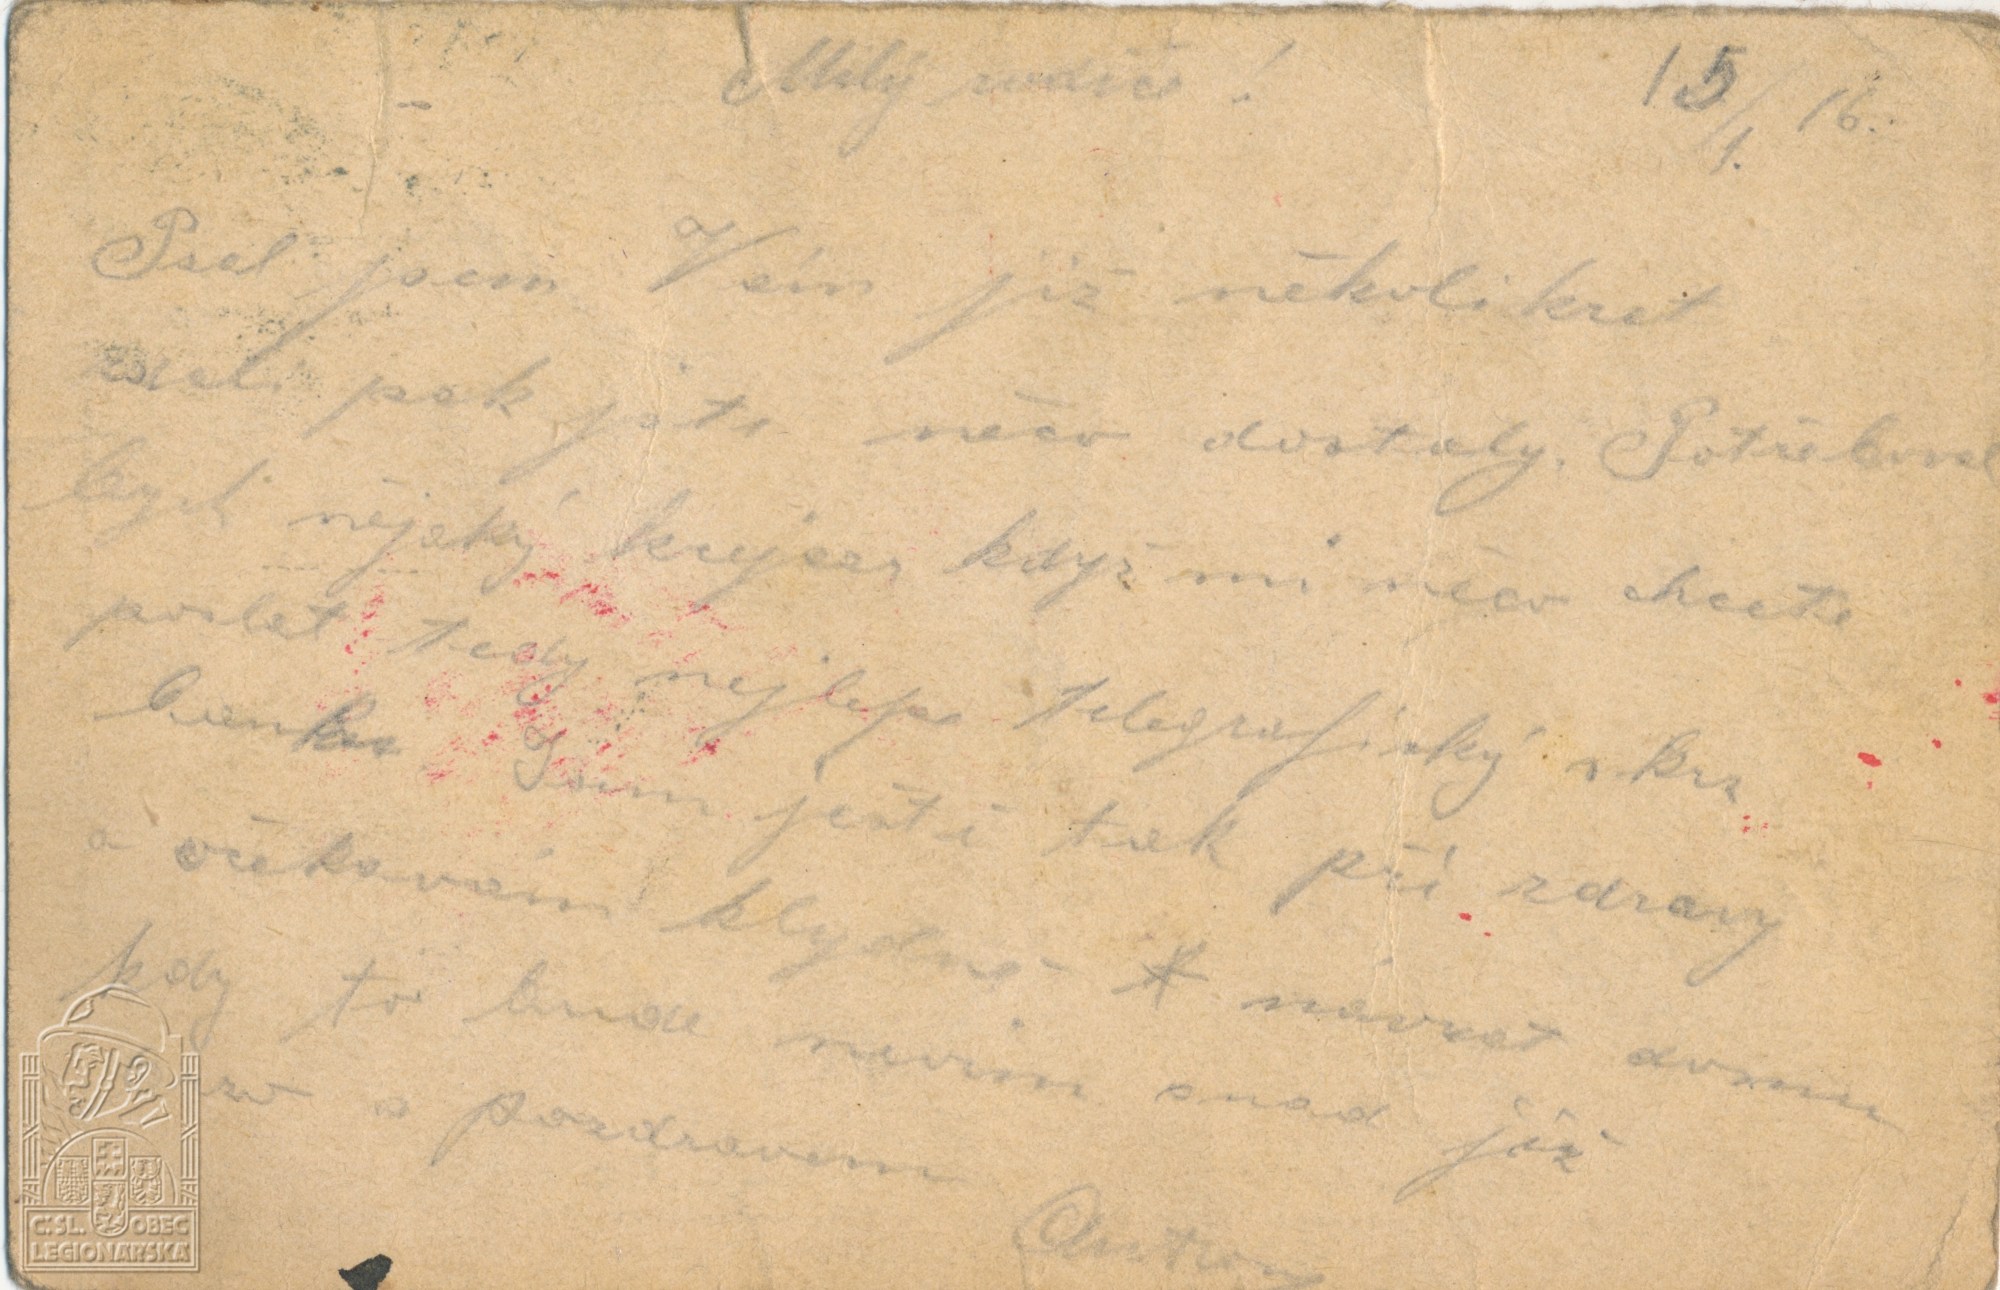 Milý rodiče! 15/1. 16.
Psal jsem Vám již několikrat
zdali pak jste něco dostaly. Potřeboval
bych nějaký když mi něco chcete
poslat tedy nejlepe telegrafický skrz
banku Jsem ještě tak při zdravy
a očekavám klydně návrat domu
kdy to bude nevim snad již
s pozdravem
Antony
Č.SL. OBEC
LEGIONÁŘSKÁ